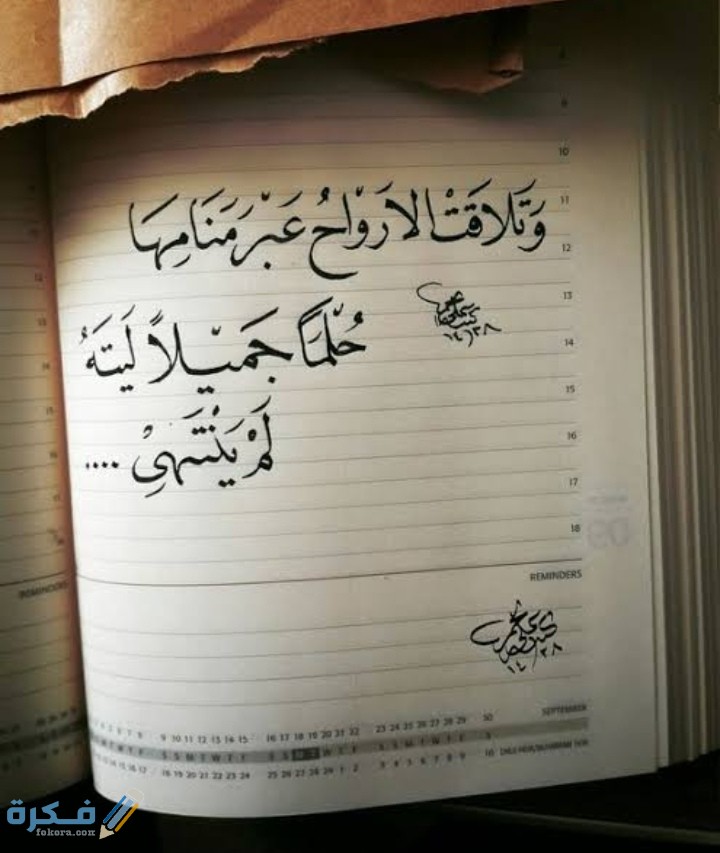 8
9
10
11
وَتَلَاقَتْ الارَوْاحُ عَبْرَ مَنَامِهَا
12
13
١٤٣٨
حُلْمَاً جَمَيْلاً لَيتَهُ
14
15
لَمْ يَنْتَهِيْ ....
16
17
18
REMINDERS
REMINDERS
١٤٣٨
SEPTEMBER
9 10 11 12 13 14 15 16 17 18 19 20 21 22 23 24 25 26 27 28 29 30
S S M T W T F S S M T W T F S S M T W T F S
18 19 20 21 22 23 24 25 26 27 28 29 1 2 3 4 5 6 7 8 9 10
فكرة
fokora.com